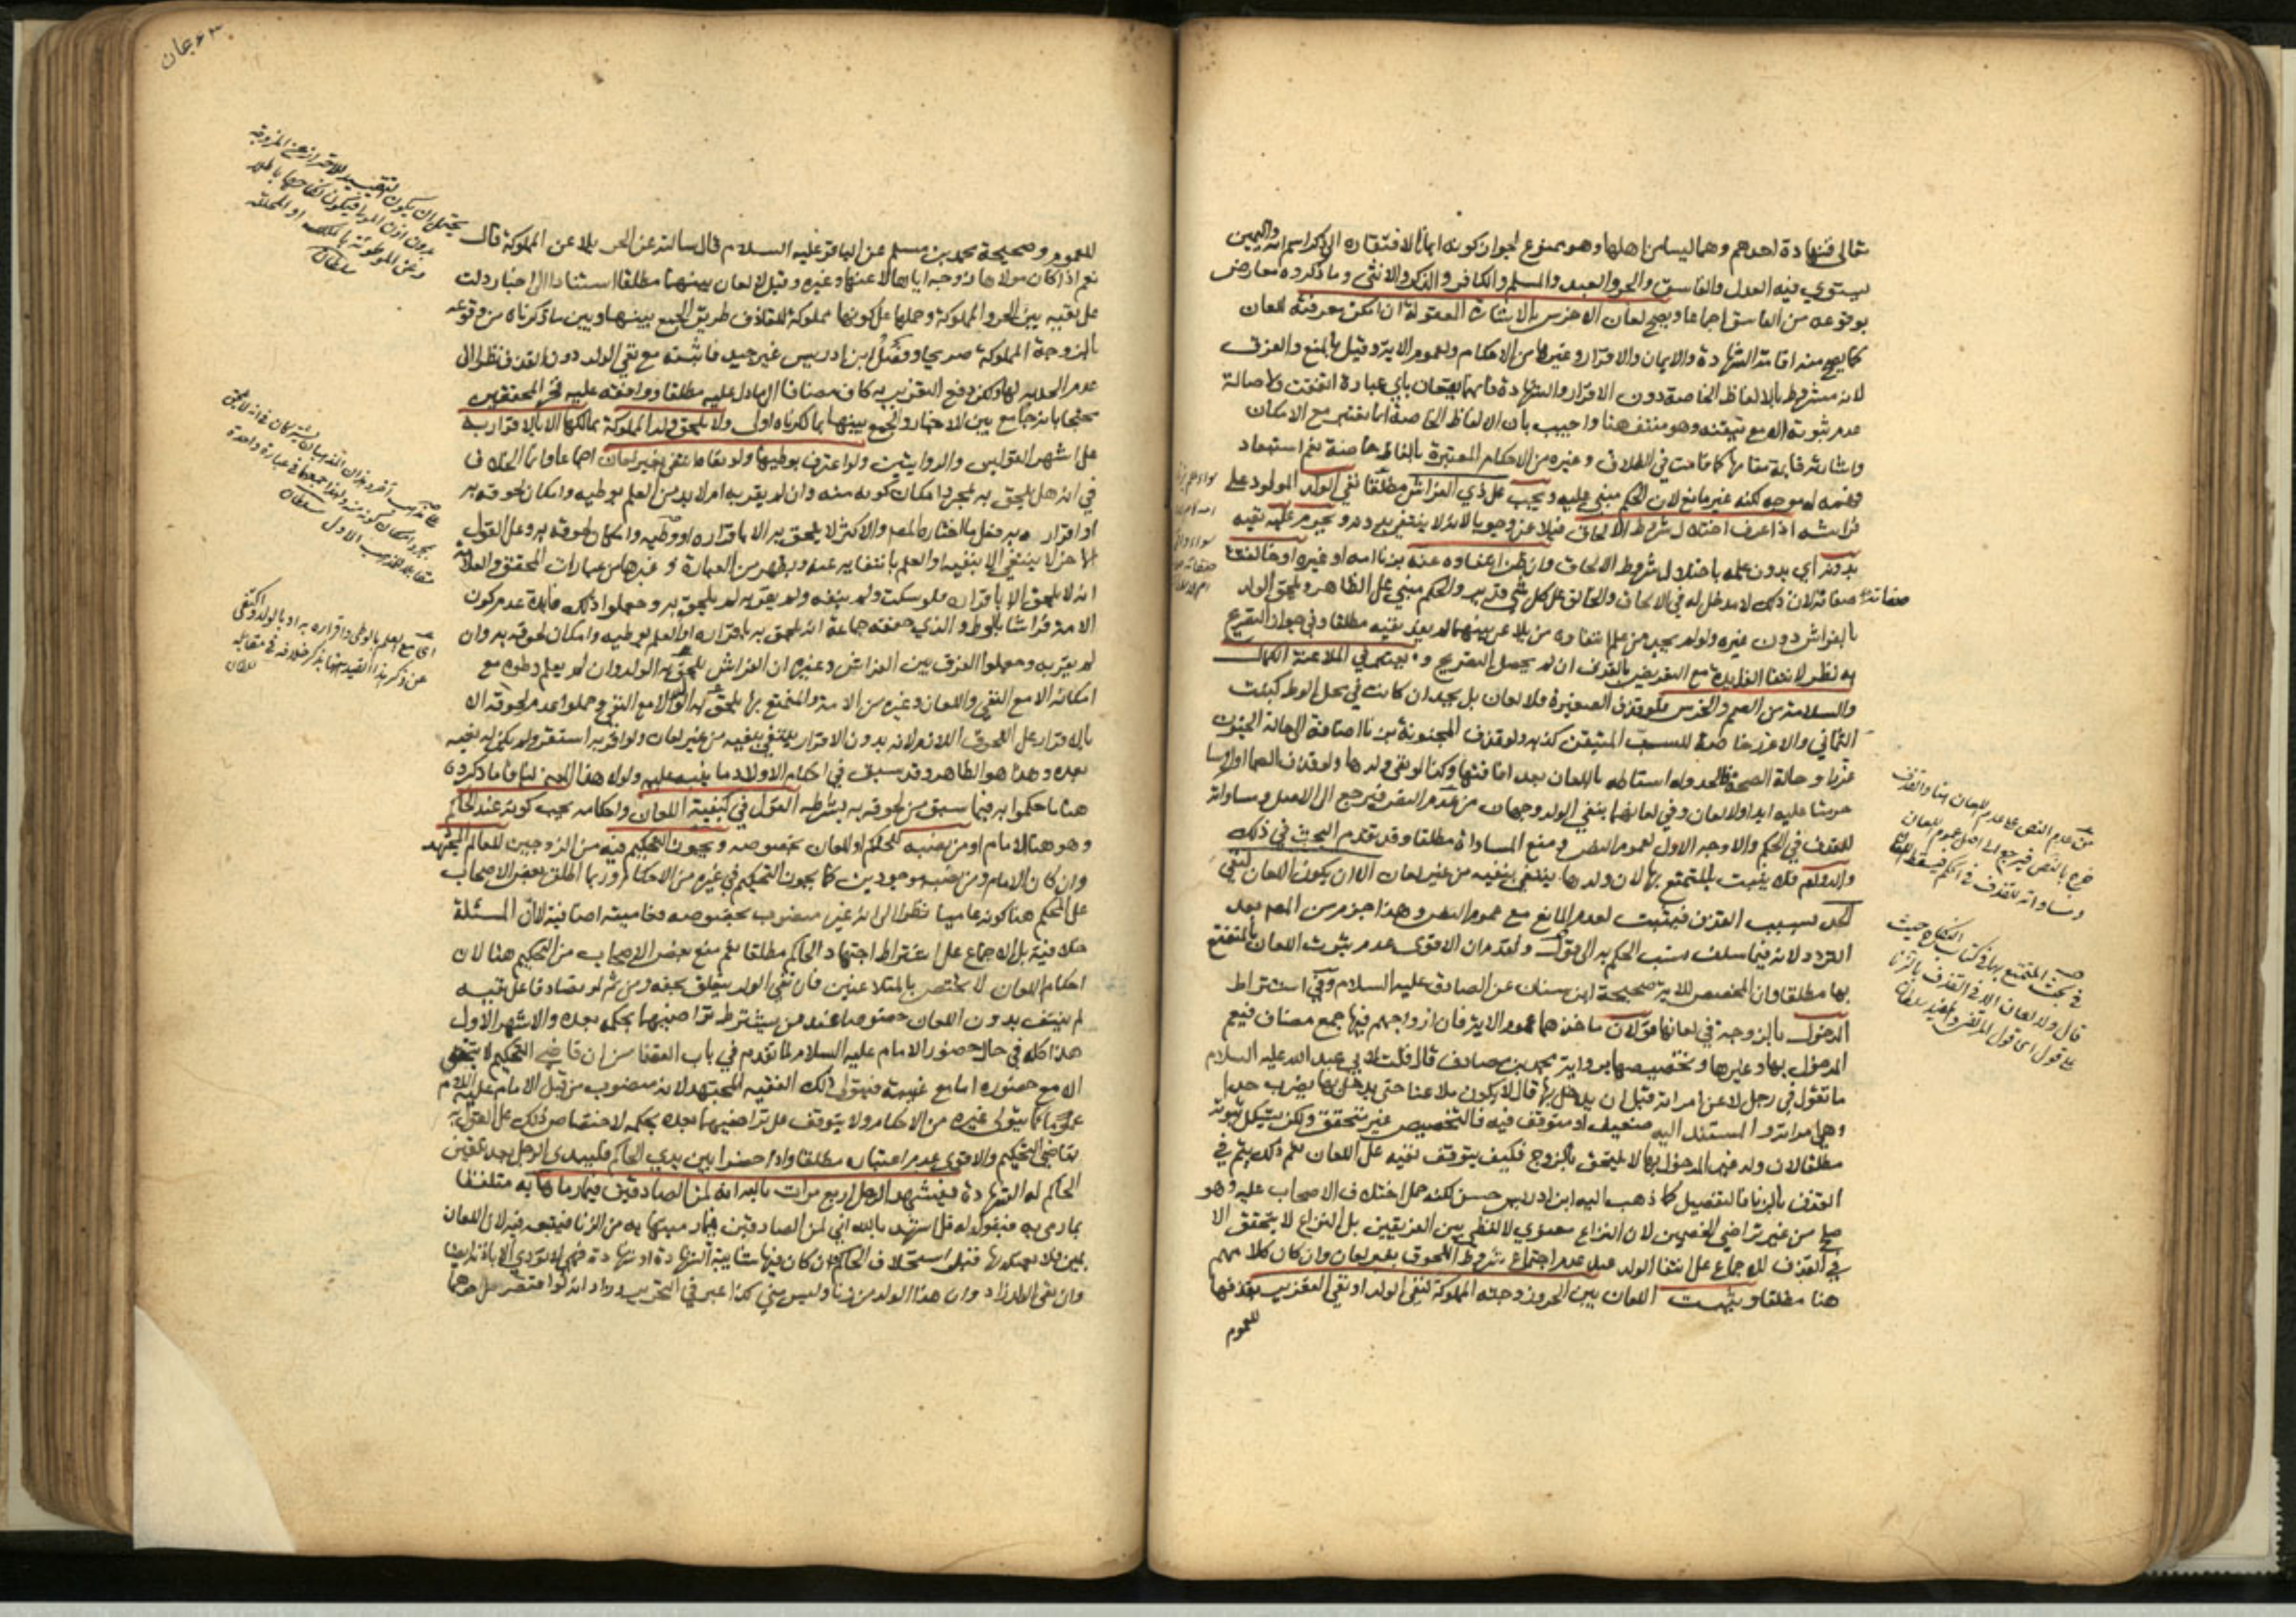 تعالى فشهادة احدهم وهما ليسا من اهلها وهو ممنوع لجواز كونه ايمانا لافتقاره الى ذكر اسم الله واليمين
يستوي فيه العدل والفاسق والحر والعبد والمسلم والكافر والذكر والانثى وما ذكروه معارض
بوقوعه من الفاسق اجماعا ويصح لعان الاخرس بالاشارة المعقولة ان امكن معرفته اللعان
كما يصح منه اقامة الشهادة والايمان والاقرار وغيرها من الاحكام ولعموم الاية وقيل بالمنع والفرق
لانه مشروط بالالفاظ الخاصة دون الاقرار والشهادة فانهما يقعان باي عبارة اتفقت ولاصالة
عدم ثبوته الا مع تيقنه وهو منتف هنا واجيب بان الالفاظ الخاصة انما تعتبر مع الامكان
واشارته قائمة مقامها كما قامت في الطلاق وغيره من الاحكام المعتبرة بالفاظ خاصة نعم استبعاد
فهمه له موجه لكنه غير مانع لان الحكم مبني عليه ويجب على ذي الفراش مطلقا نفي الولد المولود على
فراشه اذا عرف اختلال شروط الالحاق فيلاعن وجوبا لانه لا ينتفي بدونه ويحرم عليه نفيه
بدونه اي بدون علمه باختلال شروط الالحاق وان ظن انتفاوه عنه بزنا امه او غيره او خالفت
صفاته صفاته لان ذلك لا مدخل له في الالحاق والخالق على كل شي قدير والحكم مبني على الظاهر ويلحق الولد
بالفراش دون غيره ولو لم يجب من علم انتفاوه من يلاعن بينهما لم يفد نفيه مطلقا وفي جواز التصريح
به نظر لانتفاء الفايدة مع التعريض بالقذف ان لم يحصل التصريح و يعتبر في الملاعنة الكمال
والسلامة من الصمم والخرس فلو قذف الصغيرة فلا لعان بل يحد ان كانت في محل الوطء كبنت
الثماني والا عزر خاصة للسب المتيقن كذبه ولو قذف المجنونة بزنا اضافه الى حالة الجنون
عزر او حالة الصحة فالحد وله اسقاطه باللعان بعد افاقتها وكذا لو نفى ولدها ولو قذف الصما او الخرسا
حرمتا عليه ابدا ولا لعان وفي لعانهما بنفي الولد وجهان من عدم النص فيرجع الى الاصل ومساواته
للقذف في الحكم والاوجه الاول لعموم النص ومنع المساواة مطلقا وقد تقدم البحث في ذلك
والدوام فلا يثبت بالمتمتع بها لان ولدها ينتفي بنفيه من غير لعان الا ان يكون اللعان لنفي
الحد بسبب القذف فيثبت لعدم المانع مع عموم النص وهذا جزم من المص بعد
التردد لانه فيما سلف نسب الحكم به الى قول وتقدم ان الاقوى عدم ثبوت اللعان بالمتمتع
بها مطلقا وان المخصص للاية صحيحة ابن سنان عن الصادق عليه السلام وفي اشتراط
الدخول بالزوجة في لعانها قولان ماخذهما عموم الاية فان ازواجهم فيها جمع مضاف فيعم
المدخول بها وغيرها وتخصيصها برواية محمد بن مصادف قال قلت لابي عبد الله عليه السلام
ما تقول في رجل لاعن امراته قبل ان يدخل بها قال لا يكون ملاعنا حتى يدخل بها يضرب حدا
وهي امراته والمستند اليه ضعيف او متوقف فيه فالتخصيص غير متحقق ولكن يشكل ثبوته
مطلقا لان ولد غير المدخول بها لا يلحق بالزوج فكيف يتوقف نفيه على اللعان نعم ذلك يتم في
القذف بالزنا فالتفصيل كما ذهب اليه ابن ادريس حسن لكنه حمل اختلاف الاصحاب عليه وهو
صلح من غير تراضي الخصمين لان النزاع معنوي لا لفظي بين الفريقين بل النزاع لا يتحقق الا
في القذف للاجماع على انتفا الولد عند عدم اجتماع شروط اللحوق بغير لعان وان كان كلامهم
هنا مطلقا ويثبت اللعان بين الحر وزوجته المملوكة لنفي الولد او نفي التعزير بقذفها
للعموم
للعموم وصحيحة محمد بن مسلم عن الباقر عليه السلام قال سالته عن الحر يلاعن المملوكة قال
نعم اذا كان مولاها زوجه اياها لاعنها وغيره وقيل لا لعان بينهما مطلقا استنادا الى اخبار دلت
على نفيه بين الحر والمملوكة وحملها على كونها مملوكة للقاذف طريق الجمع بينها وبين ما ذكرناه من وقوعه
بالزوجة المملوكة صريحا وفصل ابن ادريس غير جيد فاثبته مع نفي الولد دون القذف نظرا الى
عدم الحد به لها ولكن دفع التعزير به كاف مضافا الى ما دل عليه مطلقا ووافقه عليه فخر المحققين
محتجا بانه جامع بين الاخبار والجمع بينهما بما ذكرناه اولى ولا يلحق ولد المملوكة بمالكها الا بالاقرار به
على اشهر القولين والروايتين ولو اعترف بوطيها ولو نفاه انتفى بغير لعان اجماعا وانما الخلاف
في انه هل يلحق به بمجرد امكان كونه منه وان لم يقر به ام لا بد من العلم بوطيه وامكان لحوقه به
او اقراره به فعلى ما اختاره المص والاكثر لا يلحق به الا باقراره او وطيه وامكان لحوقه به وعلى القول
الاخر لا ينتفي الا بنفيه او العلم بانتفايه عنه ويظهر من العبارة وغيرها من عبارات المحقق والعلامة
انه لا يلحق الا باقراره فلو سكت ولم ينفه ولم يقر به لم يلحق به وجعلوا ذلك فايدة عدم كون
الامة فراشا بالوطء والذي حققه جماعة انه يلحق به باقراره او العلم بوطيه وامكان لحوقه به وان
لم يقر به وجعلوا الفرق بين الفراش وغيره ان الفراش يلحق به الولد وان لم يعلم وطوه مع
امكانه الا مع النفي واللعان وغيره من الامة والمتمتع بها يلحق به الولد الا مع النفي وحملوا عدم لحوقه الا
بالاقرار على اللحوق اللازم لانه بدون الاقرار ينتفي بنفيه من غير لعان ولو اقر به استقر ولم يكن له نفيه
بعده وهذا هو الظاهر وقد سبق في احكام الاولاد ما ينبه عليه ولولا هذا المعنى لنافى ما ذكروه
هنا ما حكموا به فيما سبق من لحوقه به بشرطه القول في كيفية اللعان واحكامه يجب كونه عند الحاكم
وهو هنا الامام او من نصبه للحكم او للعان بخصوصه ويجوز التحكيم فيه من الزوجين للعالم المجتهد
وان كان الامام ومن نصبه موجودين كما يجوز التحكيم في غيره من الاحكام وربما اطلق بعض الاصحاب
على المحكم هنا كونه عاميا نظرا الى انه غير منصوب بخصوصه فعاميته اضافية لان المسئلة
خلافية بل الاجماع على اشتراط اجتهاد الحاكم مطلقا نعم منع بعض الاصحاب من التحكيم هنا لان
احكام اللعان لا تختص بالمتلاعنين فان نفي الولد يتعلق بحقه ومن ثم لو تصادقا على نفيه
لم ينتف بدون اللعان خصوصا عند من يشترط تراضيهما بحكمه بعده والاشهر الاول
هذا كله في حال حضور الامام عليه السلام لما تقدم في باب القضا من ان قاضي التحكيم لا يتحقق
الا مع حضوره اما مع غيبته فيتولى ذلك الفقيه المجتهد لانه منصوب من قبل الامام عليه السلام
عموما كما يتولى غيره من الاحكام ولا يتوقف على تراضيهما بعده بحكمه لاختصاص ذلك على القول به
بقاضي التحكيم والاقوى عدم اعتباره مطلقا واذا حضرا بين يدي الحاكم فليبدء الرجل بعد تلقين
الحاكم له الشهادة فيشهد الرجل اربع مرات بالله انه لمن الصادقين فيما رماها به متلفظا
بما رمى به فيقول له قل اشهد بالله اني لمن الصادقين فيما رميتها به من الزنا فيتبعه فيه لان اللعان
يمين فلا يعتد بها قبل استحلاف الحاكم وان كان فيها شايبة الشهادة او شهادة فهي لا تؤدي الا باذنه ايضا
وان نفى الولد زاد وان هذا الولد من زنا وليس مني كذا عبر في التحرير وزاد انه لو اقتصر على احدهما
يحتمل ان يكون التقييد للاحتراز عن المزوجة
بدون اذن المولى فيكون نكاحها باطلا
وعن الموطوئة بالملك او المحللة
سلطان